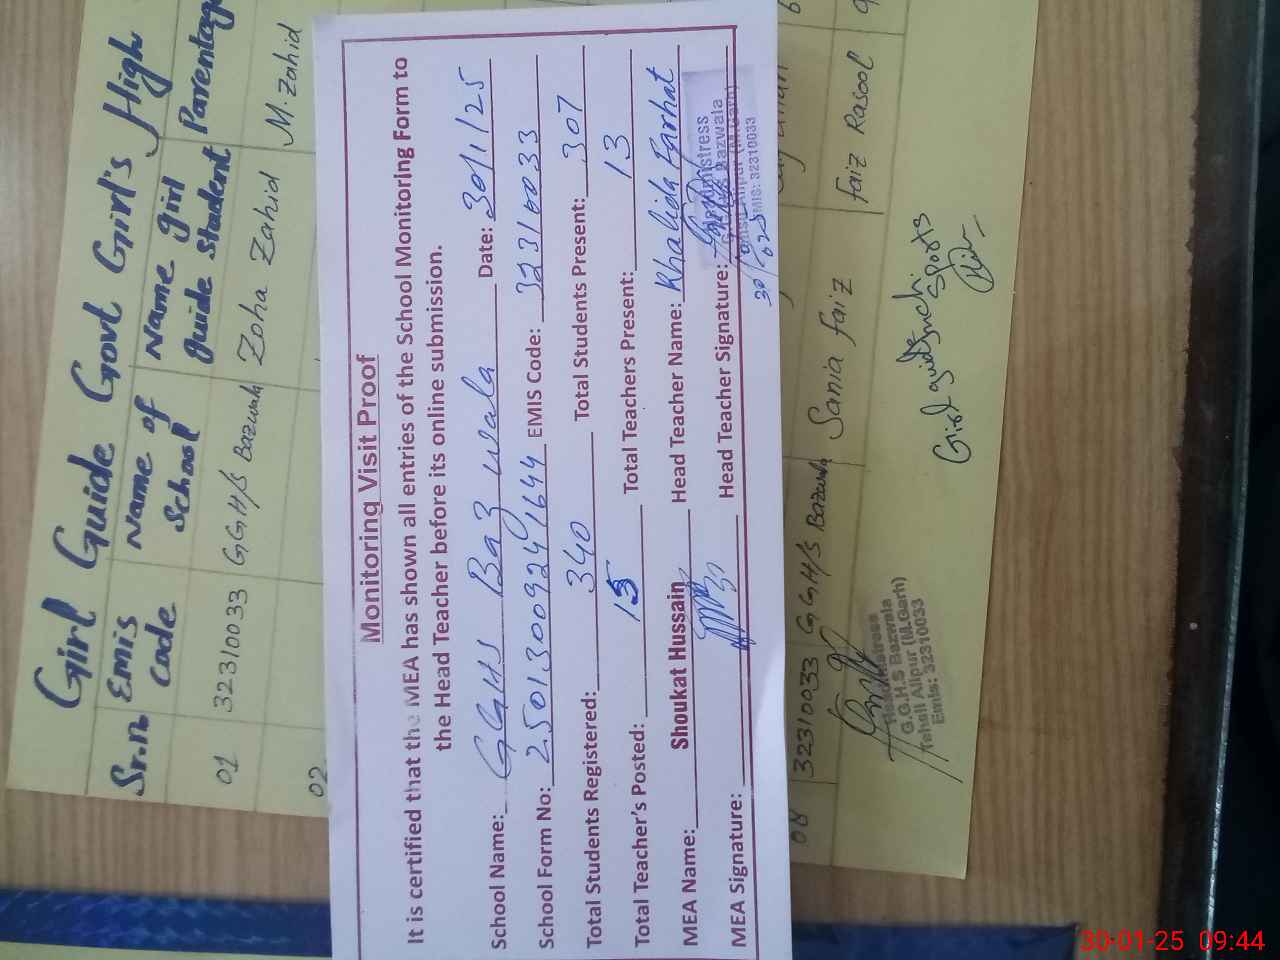 Girl Guide Govt Girl's High
Sr.n Emis Code Name of School Name girl guide student Parentag
01 32310033 GGH/S Bazwala Zoha Zahid M.Zahid
02
Monitoring Visit Proof
It is certified that the MEA has shown all entries of the School Monitoring Form to
the Head Teacher before its online submission.
School Name: GGHS Baz wala Date: 30/1/25
School Form No: 2501300924/1644 EMIS Code: 32310033
Total Students Registered: 340 Total Students Present: 307
Total Teacher's Posted: 15 Total Teachers Present: 13
MEA Name: Shoukat Hussain Head Teacher Name: Khalida Farhat
MEA Signature: Head Teacher Signature:
Headmistress
G.G.H.S Bazwala
Tehsil Alipur (M.Garh)
EMIS: 32310033
08 32310033 GGH/S Bazwala Sania faiz faiz Rasool
Headmistress
G.G.H.S Bazwala
Tehsil Alipur (M.Garh)
Emis: 32310033
Girl guide
Sports
30-01-25 09:44